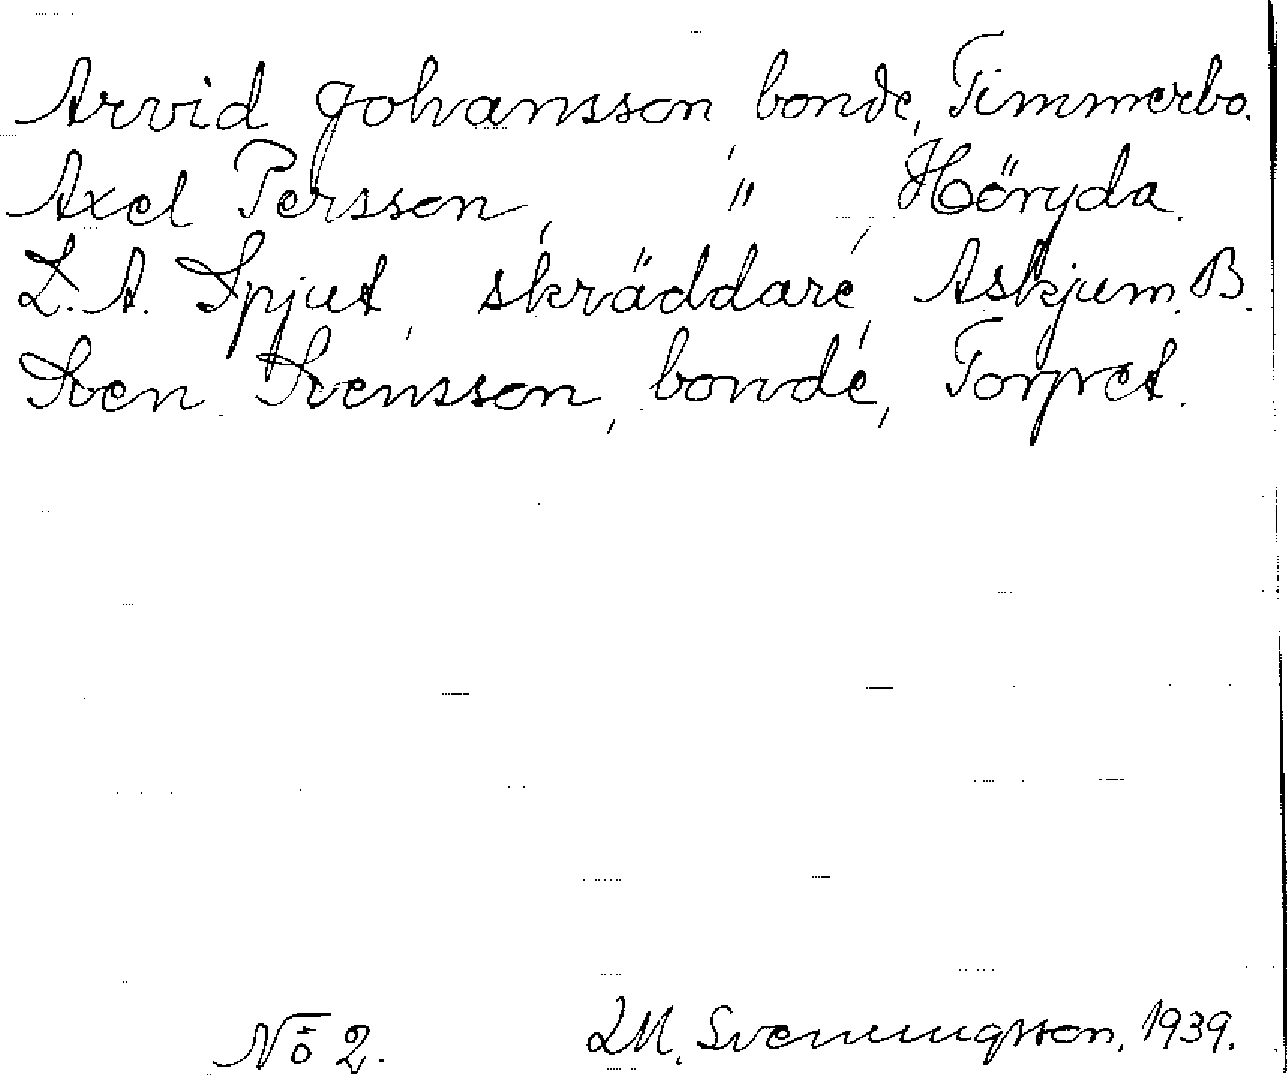 Arvid Johansson, bonde, Timmerbo.
Axel Persson, " Höryda.
L. A. Spjut, skräddare, Askjum. B.
Sven Svensson, bonde, Torpet.
No 2. L M. Svenningsson, 1939.